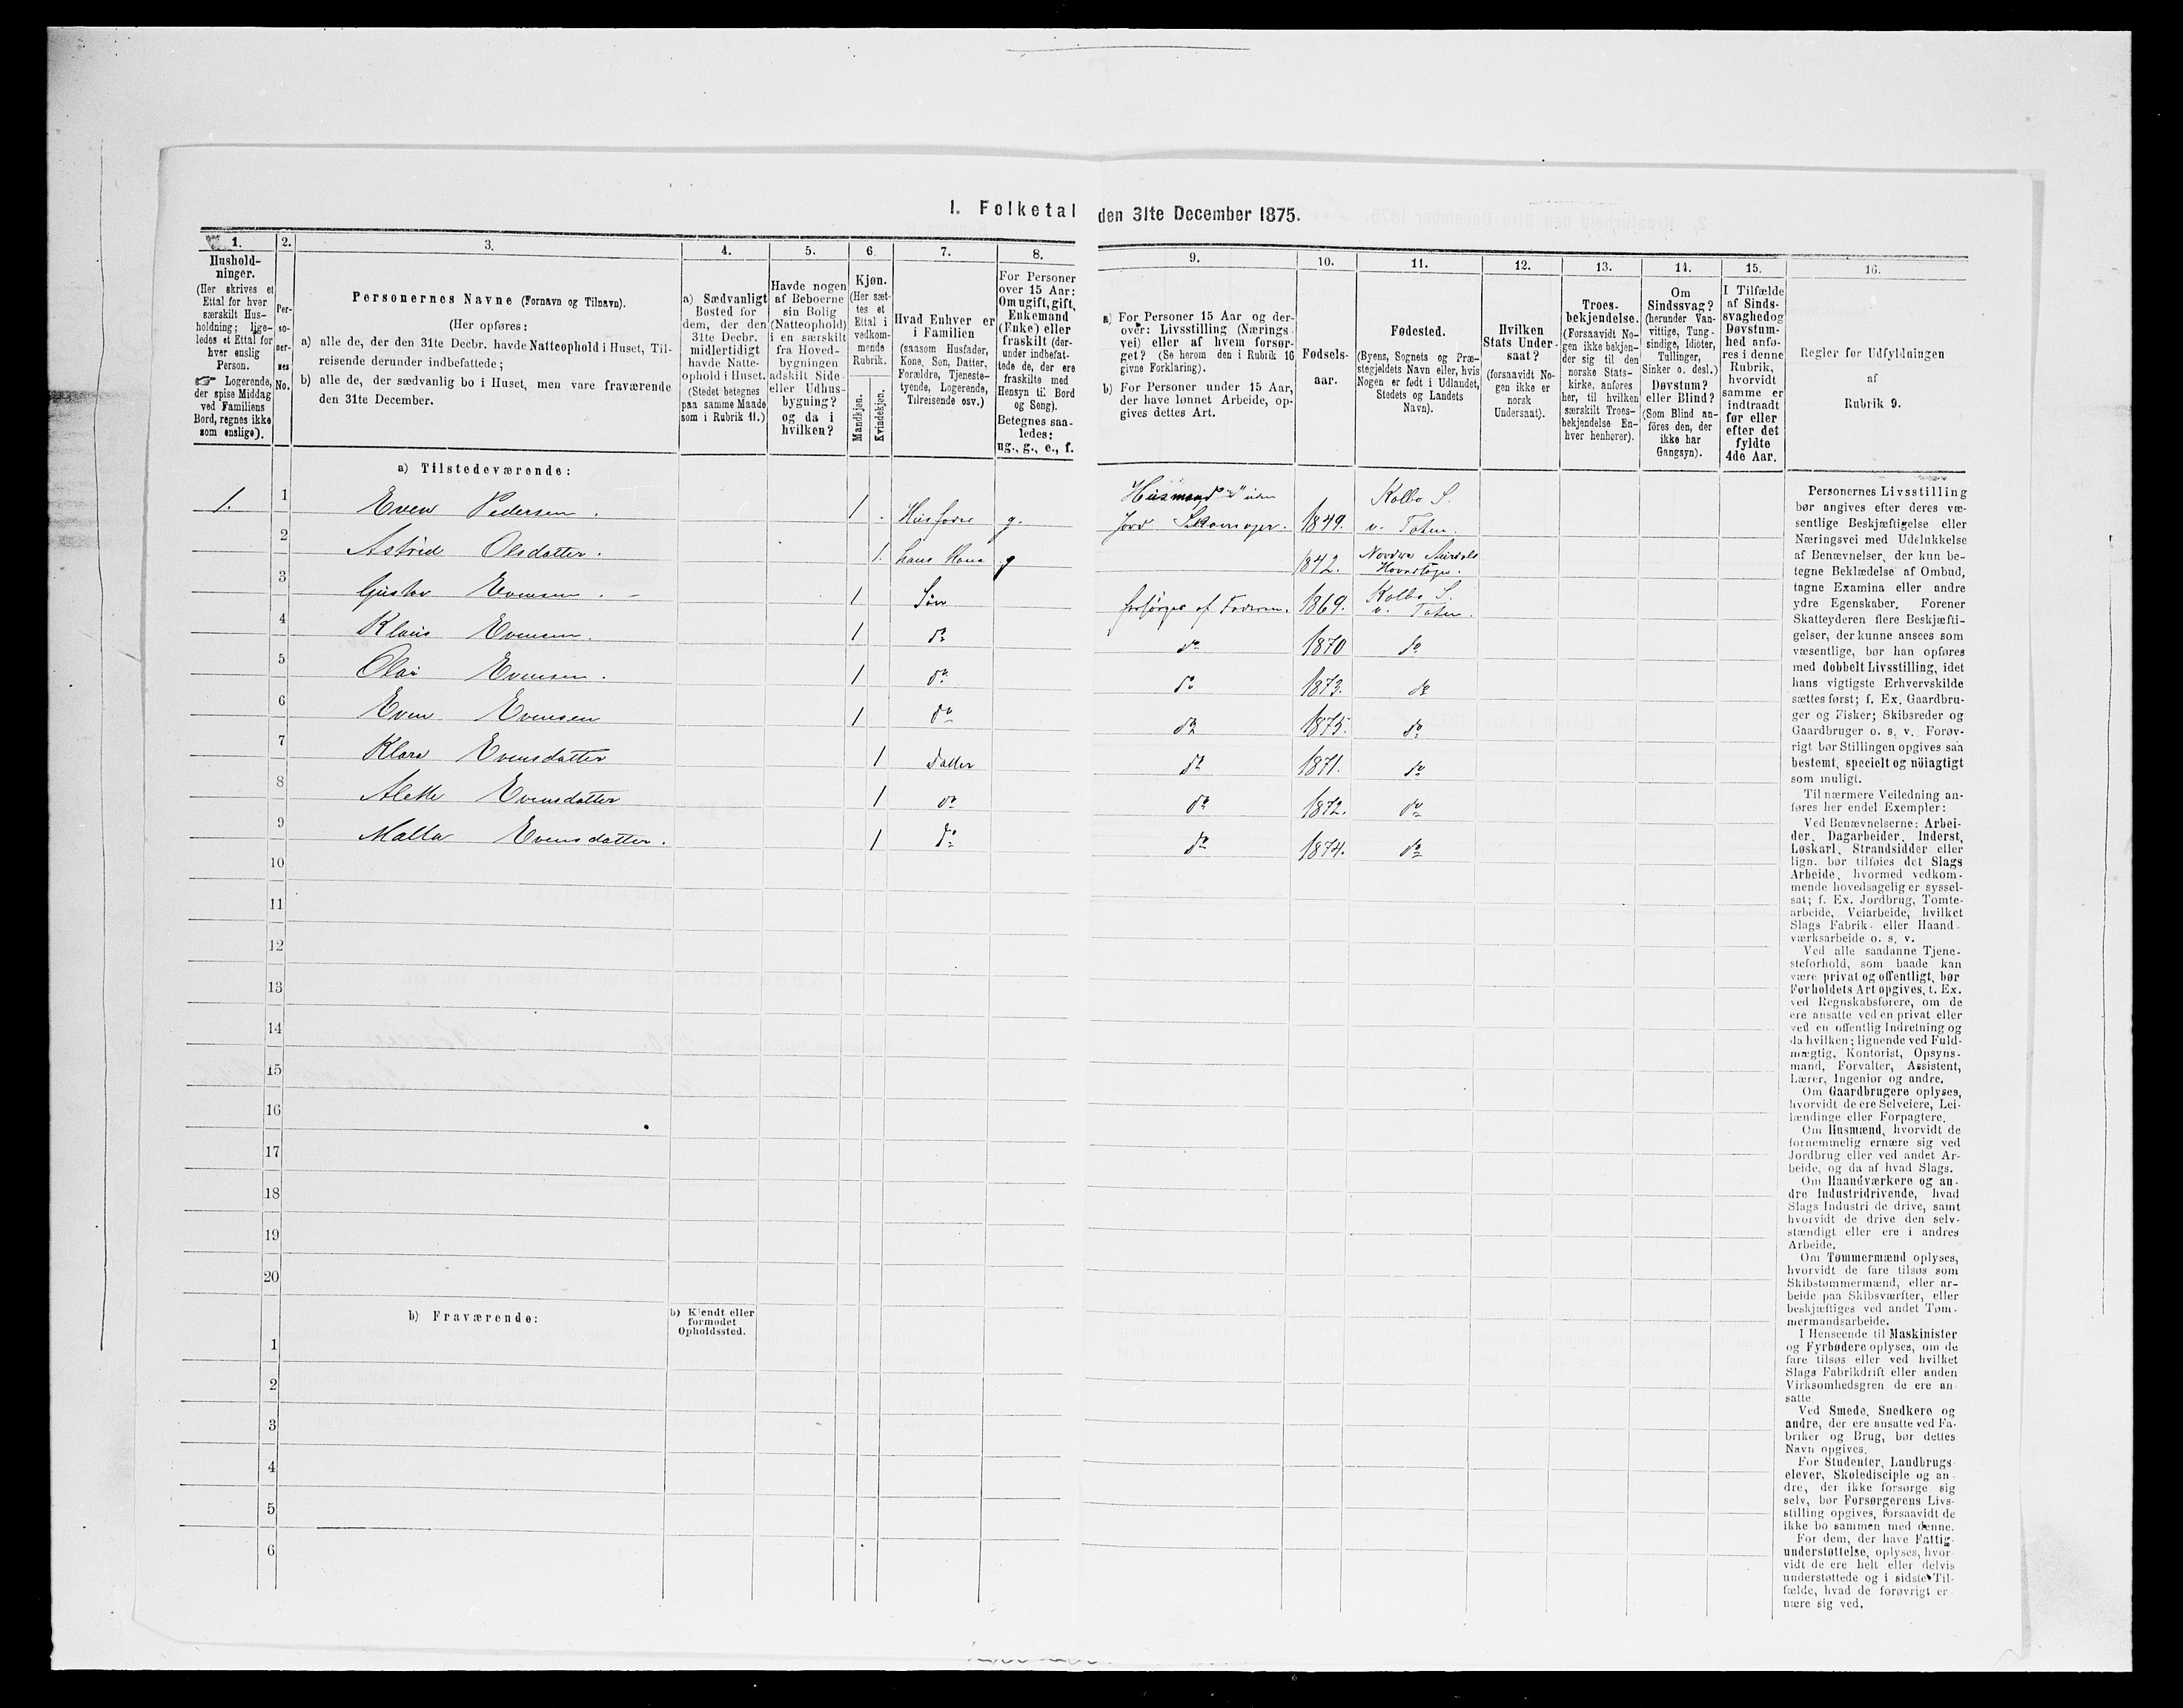 1. Folketal den 31te December 1875.
1.
Hushold-
ninger.
(Her skrives et
Ettal for hver
særskilt Hus-
holdning; lige-
ledes et Ettal for
hver enslig
Person.
☞ Logerende,
der spise Middag
ved Familiens
Bord, regnes ikke
som enslige).
2.
Per-
so-
ner-
nes
No.
3.
Personernes Navne (Fornavn og Tilnavn).
(Her opføres:
a) alle de, der den 31te Decbr. havde Natteophold i Huset, Til-
reisende derunder indbefattede;
b) alle de, der sædvanlig bo i Huset, men vare fraværende
den 31te December.
4.
a) Sædvanligt
Bosted for
dem, der den
31te Decbr.
midlertidigt
havde Natte-
ophold i Huset.
(Stedet betegnes
paa samme Maade
som i Rubrik 11.)
5.
Havde nogen
af Beboerne
sin Bolig
(Natteophold)
i en særskilt
fra Hoved-
bygningen
adskilt Side-
eller Udhus-
bygning?
og da i
hvilken?
6.
Kjøn.
(Her sæt-
tes et
Ettal i
vedkom-
mende
Rubrik.
Mandkjøn.
Kvindekjøn.
7.
Hvad Enhver er
i Familien
(saasom Husfader,
Kone, Søn, Datter,
Forældre, Tjeneste-
tyende, Logerende,
Tilreisende osv.)
8.
For Personer
over 15 Aar:
Om ugift, gift,
Enkemand
(Enke) eller
fraskilt (der-
under indbefat-
tede de, der ere
fraskilte med
Hensyn til Bord
og Seng).
Betegnes saa-
ledes:
ug., g., e., f.
9.
a) For Personer 15 Aar og der-
over: Livsstilling (Nærings-
vei) eller af hvem forsør-
get? (Se herom den i Rubrik 16
givne Forklaring).
b) For Personer under 15 Aar,
der have lønnet Arbeide, op-
gives dettes Art.
10.
Fødsels-
aar.
11.
Fødested.
(Byens, Sognets og Præ-
stegjeldets Navn eller, hvis
Nogen er født i Udlandet,
Stedets og Landets
Navn).
12.
Hvilken
Stats Under-
saat?
(forsaavidt No-
gen ikke er
norsk
Undersaat).
13.
Troes-
bekjendelse.
(Forsaavidt No-
gen ikke bekjen-
der sig til den
norske Stats-
kirke, anføres
her, til hvilken
særskilt Troes-
bekjendelse En-
hver henhører).
14.
Om
Sindssvag?
(herunder Van-
vittige, Tung-
sindige, Idioter,
Tullinger,
Sinker o. desl.)
Døvstum?
eller Blind?
(Som Blind an-
føres den, der
ikke har
Gangsyn).
15.
I Tilfælde
af Sinds-
svaghed og
Døvstum-
hed anfø-
res i denne
Rubrik,
hvorvidt
samme er
indtraadt
før eller
efter det
fyldte
4de Aar.
16.
Regler for Udfyldningen
af
Rubrik 9.
a) Tilstedeværende:
1. 1 Even Pedersen. 1 . Husfader g. Huusmand uden Jord 1849. Kolbo S. v. Toten.
2 Astrid Olsdatter. 1. hans Kone g 1842. Nordre Aurdals
3 Gustav Evensen. 1 Søn forsørges af Faderen. 1869. Kolbo S. v. Toten.
4 Klaus Evensen. 1 do do 1870 do
5 Olai Evensen. 1 do do 1873. do
6 Even Evensen 1 do do 1875. do
7 Klara Evensdatter 1 datter do 1871. do
8 Alette Evensdatter 1 do do 1872. do
9 Malla Evensdatter. 1 do do 1874. do
10
11
12
13
14
15
16
17
18
19
20
b) Fraværende:
b) Kjendt eller
formodet
Opholdssted.
1
2
3
4
5
6
Personernes Livsstilling
bør angives efter deres væ-
sentlige Beskjæftigelse eller
Næringsvei med Udelukkelse
af Benævnelser, der kun be-
tegne Beklædelse af Ombud,
tagne Examina eller andre
ydre Egenskaber. Forener
Skatteyderen flere Beskjæfti-
gelser, der kunne ansees som
væsentlige, bør han opføres
med dobbelt Livsstilling, idet
hans vigtigste Erhvervskilde
sættes først; f. Ex. Gaardbru-
ger og Fisker; Skibsreder og
Gaardbruger o. s. v. Forøv-
rigt bør Stillingen opgives saa
bestemt, specielt og nöiagtigt
som muligt.
Til nærmere Veiledning an-
føres her endel Exempler:
Ved Benævnelserne: Arbei-
der, Dagarbeider, Inderst,
Løskarl, Strandsidder eller
lign. bør tilføies det Slags
Arbeide, hvormed vedkom-
mende hovedsagelig er syssel-
sat; f. Ex. Jordbrug, Tomte-
arbeide, Veiarbeide, hvilket
Slags Fabrik- eller Haand-
værksarbeide o. s. v.
Ved alle saadanne Tjene-
steforhold, som baade kan
være privat og offentligt, bør
Forholdets Art opgives, t. Ex.
ved Regnskabsførere, om de
ere ansatte ved en privat eller
ved en offentlig Indretning og
da hvilken; lignende ved Fuld-
mægtig, Kontorist, Opsyns-
mand, Forvalter, Assistent,
Lærer, Ingeniør og andre.
Om Gaardbrugere oplyses,
hvorvidt de ere Selveiere, Lei-
lændinge eller Forpagtere.
Om Husmænd, hvorvidt de
fornemmelig ernære sig ved
Jordbrug eller ved andet Ar-
beide, og da af hvad Slags.
Om Haandværkere og an-
dre Industridrivende, hvad
Slags Industri de drive, samt
hvorvidt de drive den selv-
stændigt eller ere i andres
Arbeide.
Om Tømmermænd oplyses,
hvorvidt de fare tilsøs som
Skibstømmermænd, eller ar-
beide paa Skibsværfter, eller
beskjæftiges ved andet Tøm-
mermandsarbeide.
I Henseende til Maskinister
og Fyrbødere oplyses, om de
fare tilsøs eller ved hvilket
Slags Fabrikdrift eller anden
Virksomhedsgren de ere an-
satte.
Ved Smede, Snedkere og
andre, der ere ansatte ved Fa-
briker og Brug, bør dettes
Navn opgives.
For Studenter, Landbrugs-
elever, Skoledisciple og an-
dre, der ikke forsørge sig
selv, bør Forsørgerens Livs-
stilling opgives, forsaavidt de
ikke bo sammen med denne.
For dem, der have Fattig-
understøttelse, oplyses, hvor-
vidt de ere helt eller delvis
understøttede og i sidste Til-
fælde, hvad de forøvrigt er-
nære sig ved.